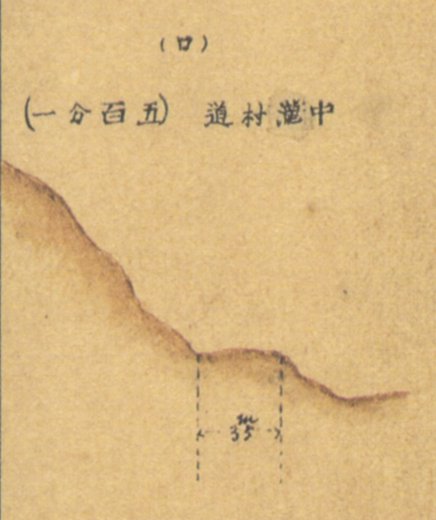 (ロ)
中瀧村道 (五百分一)
m
35